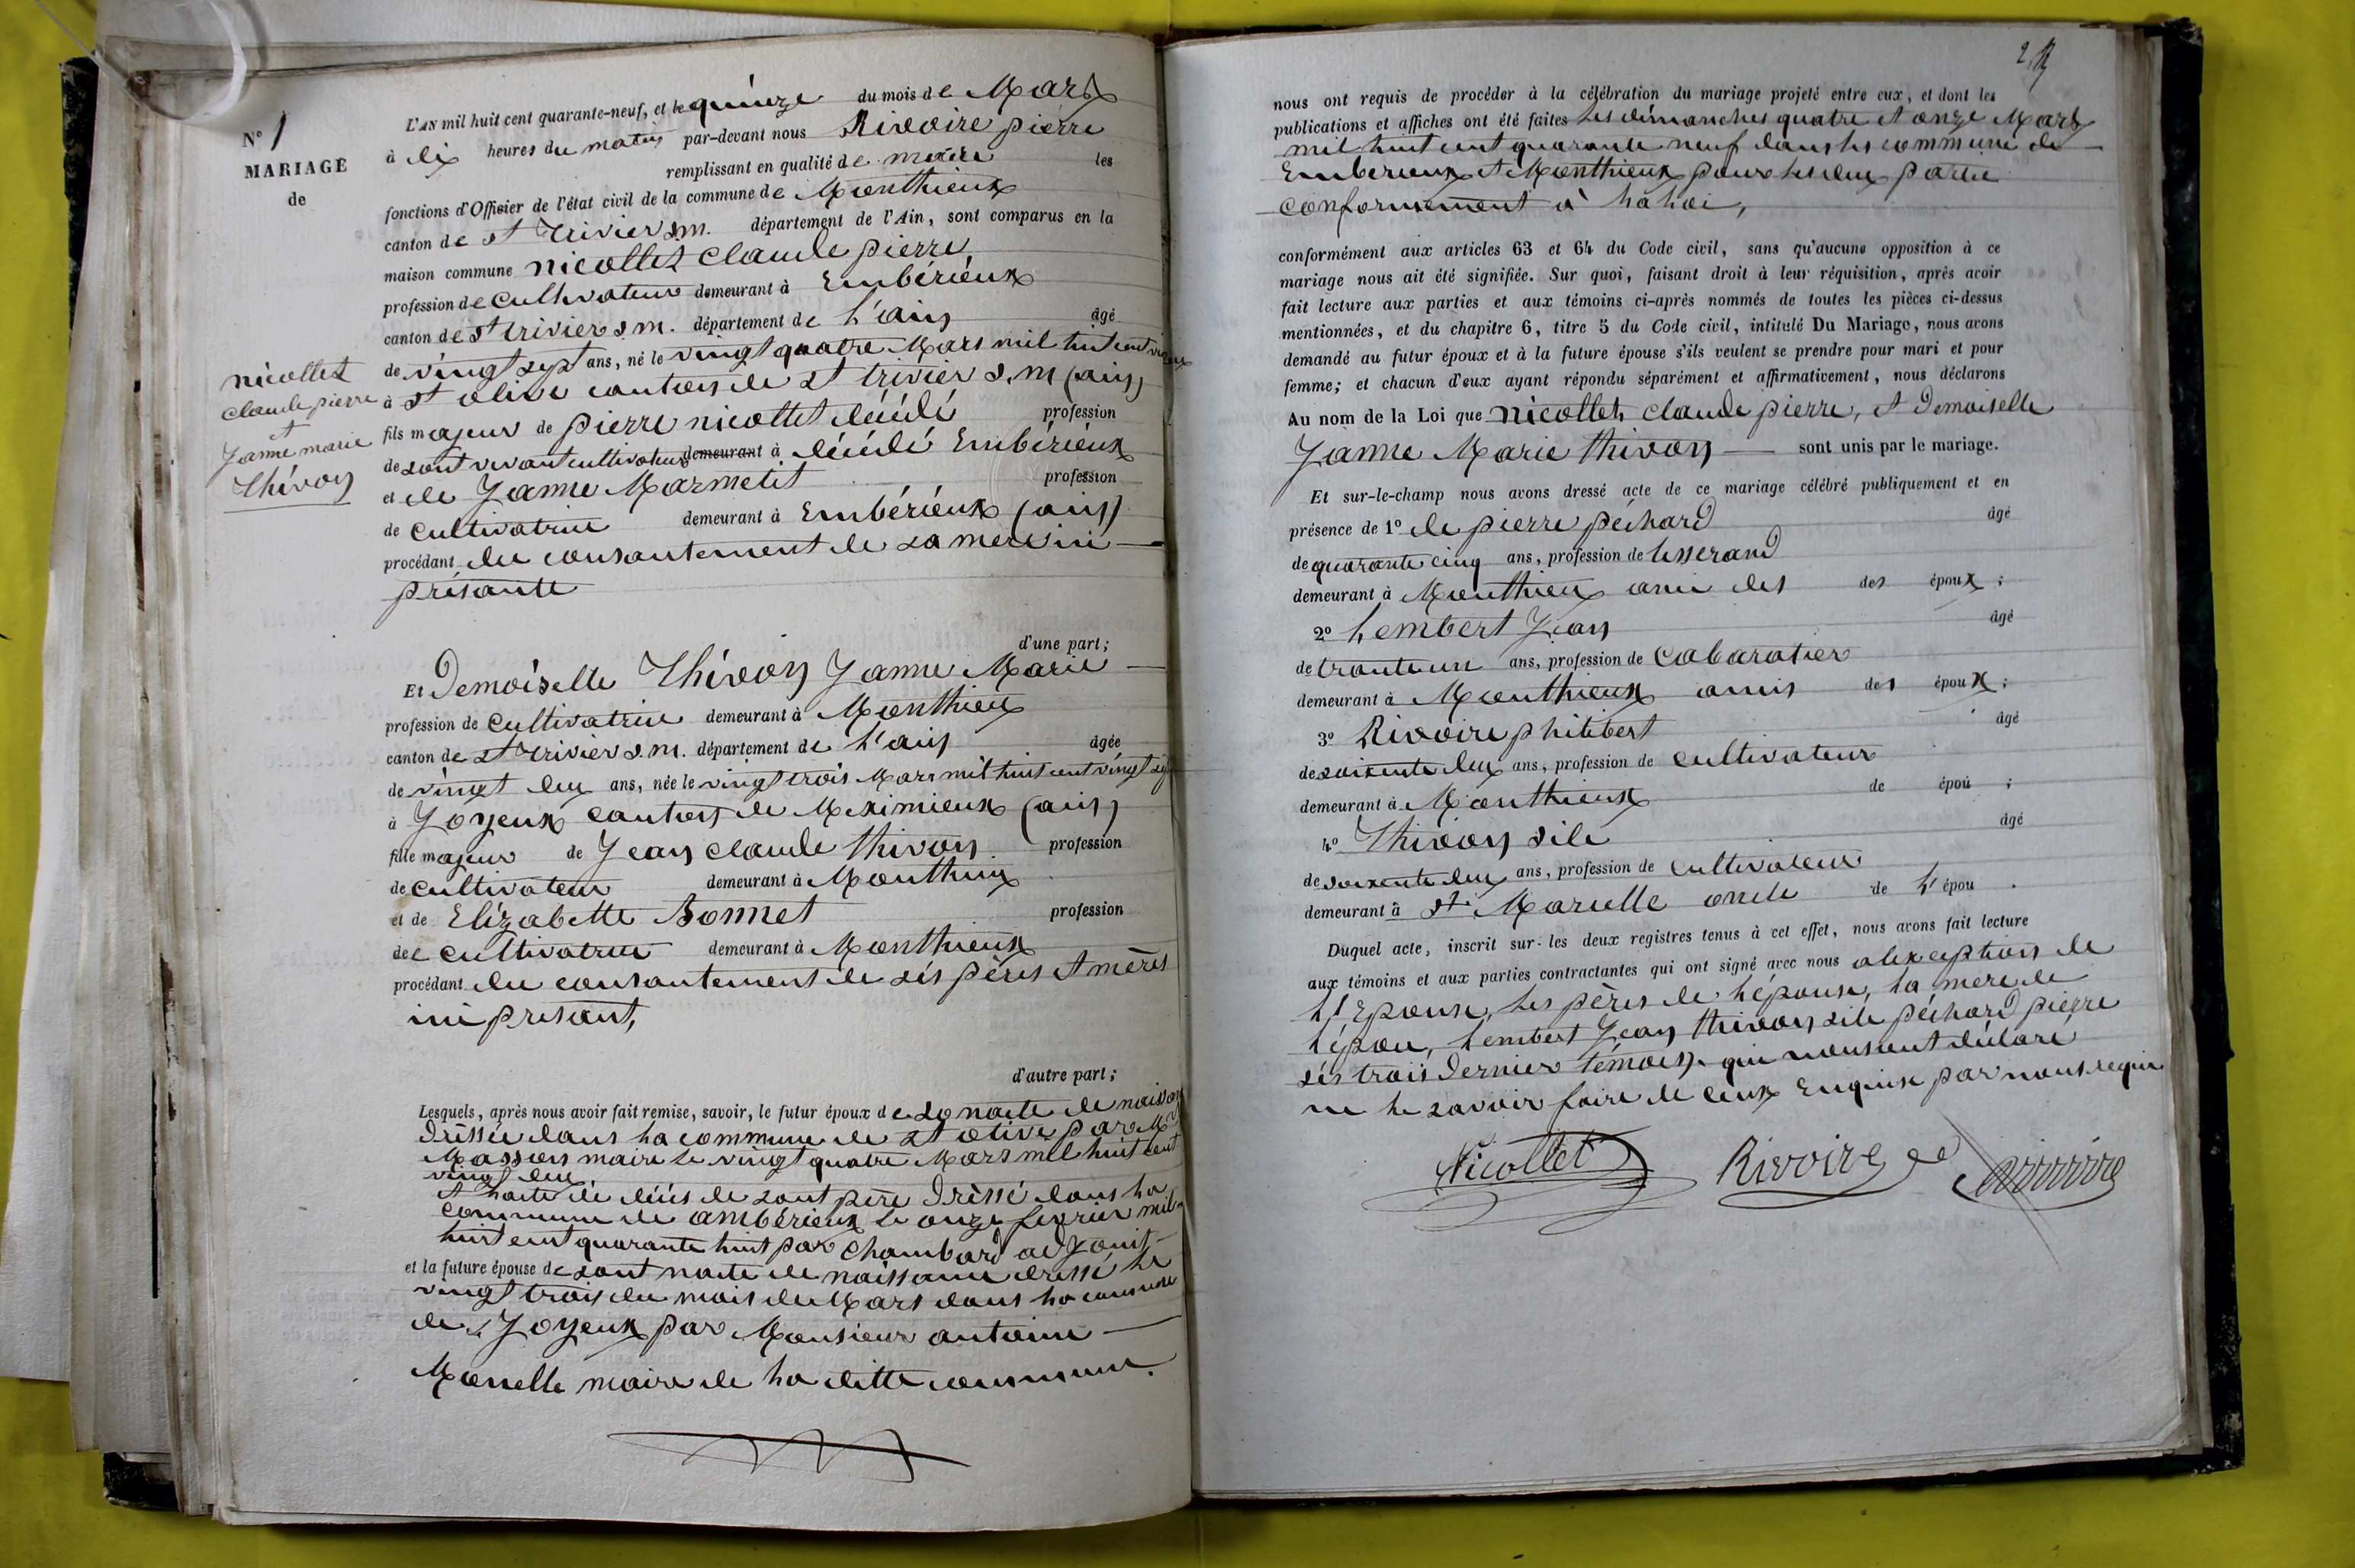 N° 1
MARIAGE
de
nicollet
claude pierre
et
Janne marie
thivon
L'AN mil huit cent quarante-neuf, et le quinze du mois de Mars
à dix heures du matin par-devant nous Rivoire pierre
remplissant en qualité de maire les
fonctions d'Officier de l'état civil de la commune de Monthieux
canton de st trivier s.m. département de l'Ain, sont comparus en la
maison commune nicollet claude pierre
profession de cultivateur demeurant à Embérieux
canton de st trivier s.m. département de l'ain âgé
de vingt sept ans, né le vingt quatre Mars mil huit cent
à st olive canton de st trivier s.m (ain)
fils majeur de pierre nicollet décédé profession
de sont vivant cultivateur demeurant à décédé Embérieux
et de Janne Marmetit profession
de cultivatrice demeurant à Embérieux (ain)
procédant du consantement de sa mère ici
présante
d'une part;
Et Demoiselle Thivon Janne Marie
profession de cultivatrice demeurant à Monthieu
canton de st trivier s.m. département de l'ain âgée
de vingt deux ans, née le vingt trois Mars mil huit cent vingt
à Joyeux canton de Meximieux (ain)
fille majeur de Jean claude thivon profession
de cultivateur demeurant à Monthieux
et de Elizabette Bonnet profession
de cultivatrice demeurant à Monthieux
procédant du consantement de sés pères et mères
ici présant,
d'autre part;
Lesquels, après nous avoir fait remise, savoir, le futur époux de so nacte de naissan
dréssée dans la commune de st olive par Mr
Masson maire le vingt quatre Mars mil huit cent
vingt deux
et l'acte de décés de sont père dréssé dans la
commune de ambérieux le onze février mil
huit cent quarante huit par Chambard adjoint
et la future épouse de sont nacte de naissance dréssé le
vingt trois du mois de Mars dans la commune
de Joyeux par Monsieur antoine
Monelle maire de la ditte commune.
nous ont requis de procéder à la célébration du mariage projeté entre eux, et dont les
publications et affiches ont été faites les dimanches quatre et onze Mars
mil huit cent quarante neuf dans les commune de
Embérieux et Monthieux pour les deux partie
conformément à la loi,
conformément aux articles 63 et 64 du Code civil, sans qu'aucune opposition à ce
mariage nous ait été signifiée. Sur quoi, faisant droit à leur réquisition, après avoir
fait lecture aux parties et aux témoins ci-après nommés de toutes les pièces ci-dessus
mentionnées, et du chapitre 6, titre 5 du Code civil, intitulé Du Mariage, nous avons
demandé au futur époux et à la future épouse s'ils veulent se prendre pour mari et pour
femme; et chacun d'eux ayant répondu séparément et affirmativement, nous déclarons
Au nom de la Loi que nicollet claude pierre, et Demoiselle
Janne Marie thivon sont unis par le mariage.
Et sur-le-champ nous avons dressé acte de ce mariage célébré publiquement et en
présence de 1° de pierre péchard âgé
de quarante cinq ans, profession de tisserand
demeurant à Monthieux ami des des époux;
2° Lembert Jean âgé
de trante un ans, profession de cabaratier
demeurant à Monthieux amis des époux;
3° Rivoire philibert âgé
de soixante deux ans, profession de cultivateur
demeurant à Monthieux de épou ;
4° Thivon sile âgé
de soixante deux ans, profession de cultivateur
demeurant à st Marcelle oncle de l'épou .
Duquel acte, inscrit sur les deux registres tenus à cet effet, nous avons fait lecture
aux témoins et aux parties contractantes qui ont signé avec nous alexception de
l'Epouse, les pères de l'épouse, la mère de
l'épou, Lembert Jean thivon sile péchard pierre
sés trois dernier témoin qui nous ont déclaré
ne le savoir faire de ceux enquise par nous requi
Nicollet Rivoire